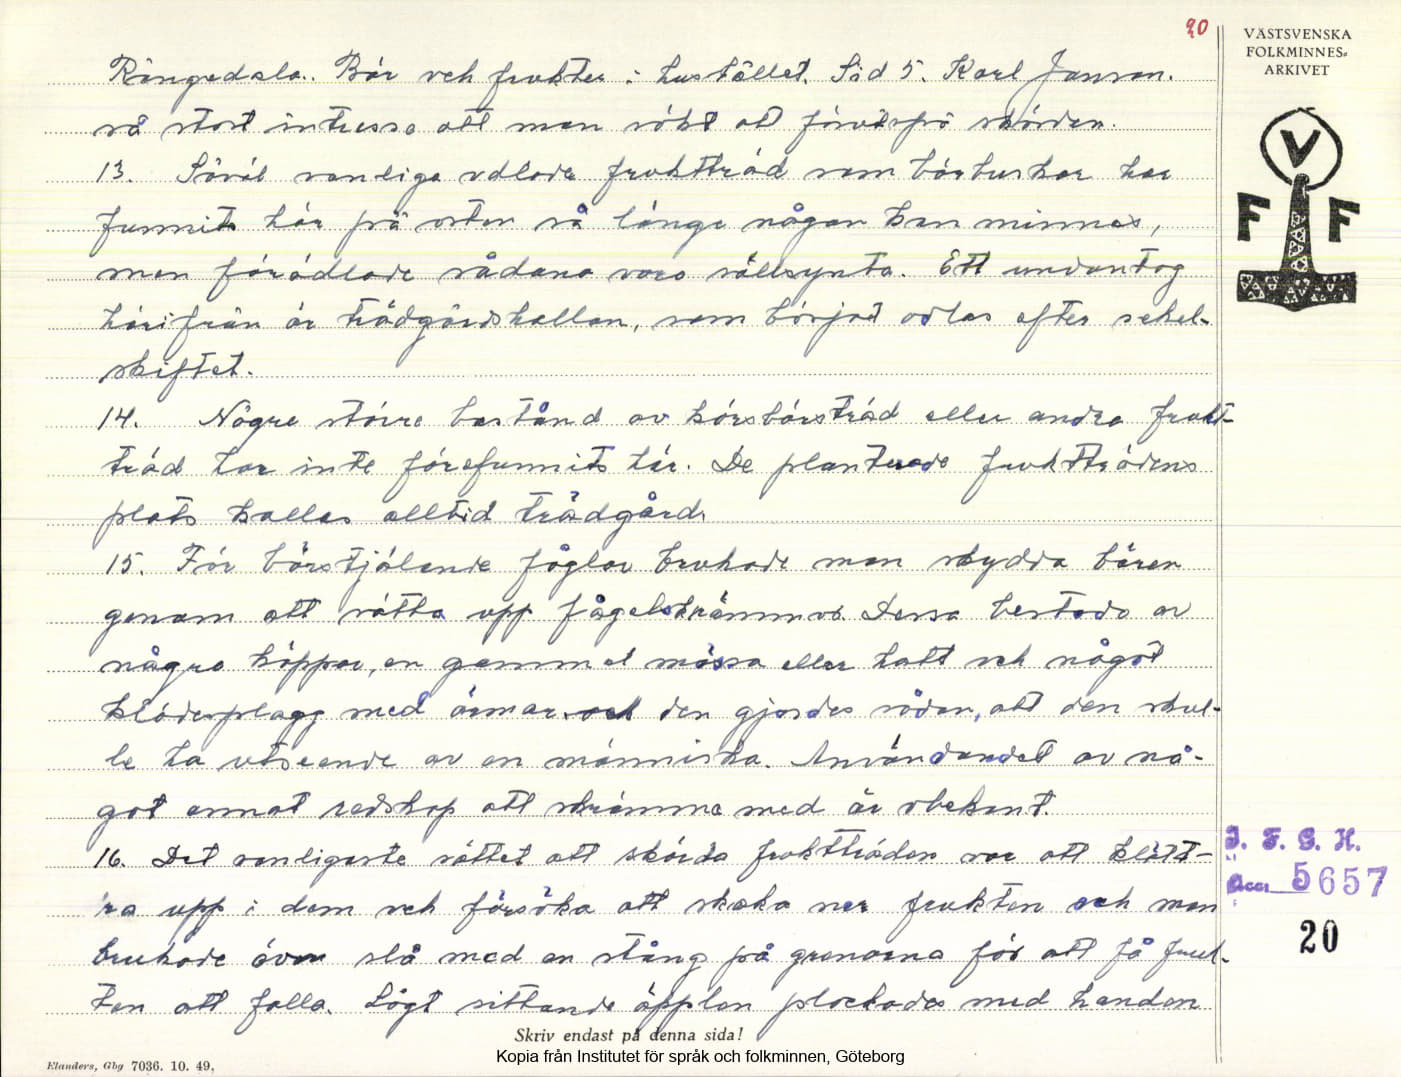 20
VÄSTSVENSKA
FOLKMINNES-
ARKIVET
V
F F
Rångedala. Bär och frukter i hushållet. Sid 5. Karl Janson.
så stort intresse att man sökt att förutspå skörden.
13. Såväl vanliga odlade fruktträd som bärbuskar har
funnits här på orten så länge någon kan minnas,
men förädlade sådana voro sällsynta. Ett undantag
härifrån är trädgårdshallon, som börjat odlas efter sekel-
skiftet.
14. Några större bestånd av körsbärsträd eller andra frukt-
träd har inte förefunnits här. De planterade fruktträdens
plats kallas alltid trädgård.
15. För bärstjälande fåglar brukade man skydda bären
genom att sätta upp fågelskrämmor. Dessa bestodo av
några käppar, en gammal mössa eller hatt och något
klädesplagg med ärmar och den gjordes sådan, att den skul-
le ha utseende av en människa. Användandet av nå-
got annat redskap att skrämma med är obekant.
16. Det vanligaste sättet att skörda fruktträden var att klätt-
ra upp i dem och försöka att skaka ner frukten och man
brukade även slå med en stång på grenarna för att få fruk-
ten att falla. Lågt sittande äpplen plockades med handen
I. F. G. H.
Acc. 5657
20
Skriv endast på denna sida!
Kopia från Institutet för språk och folkminnen, Göteborg
Elanders, Gbg 7036. 10. 49.